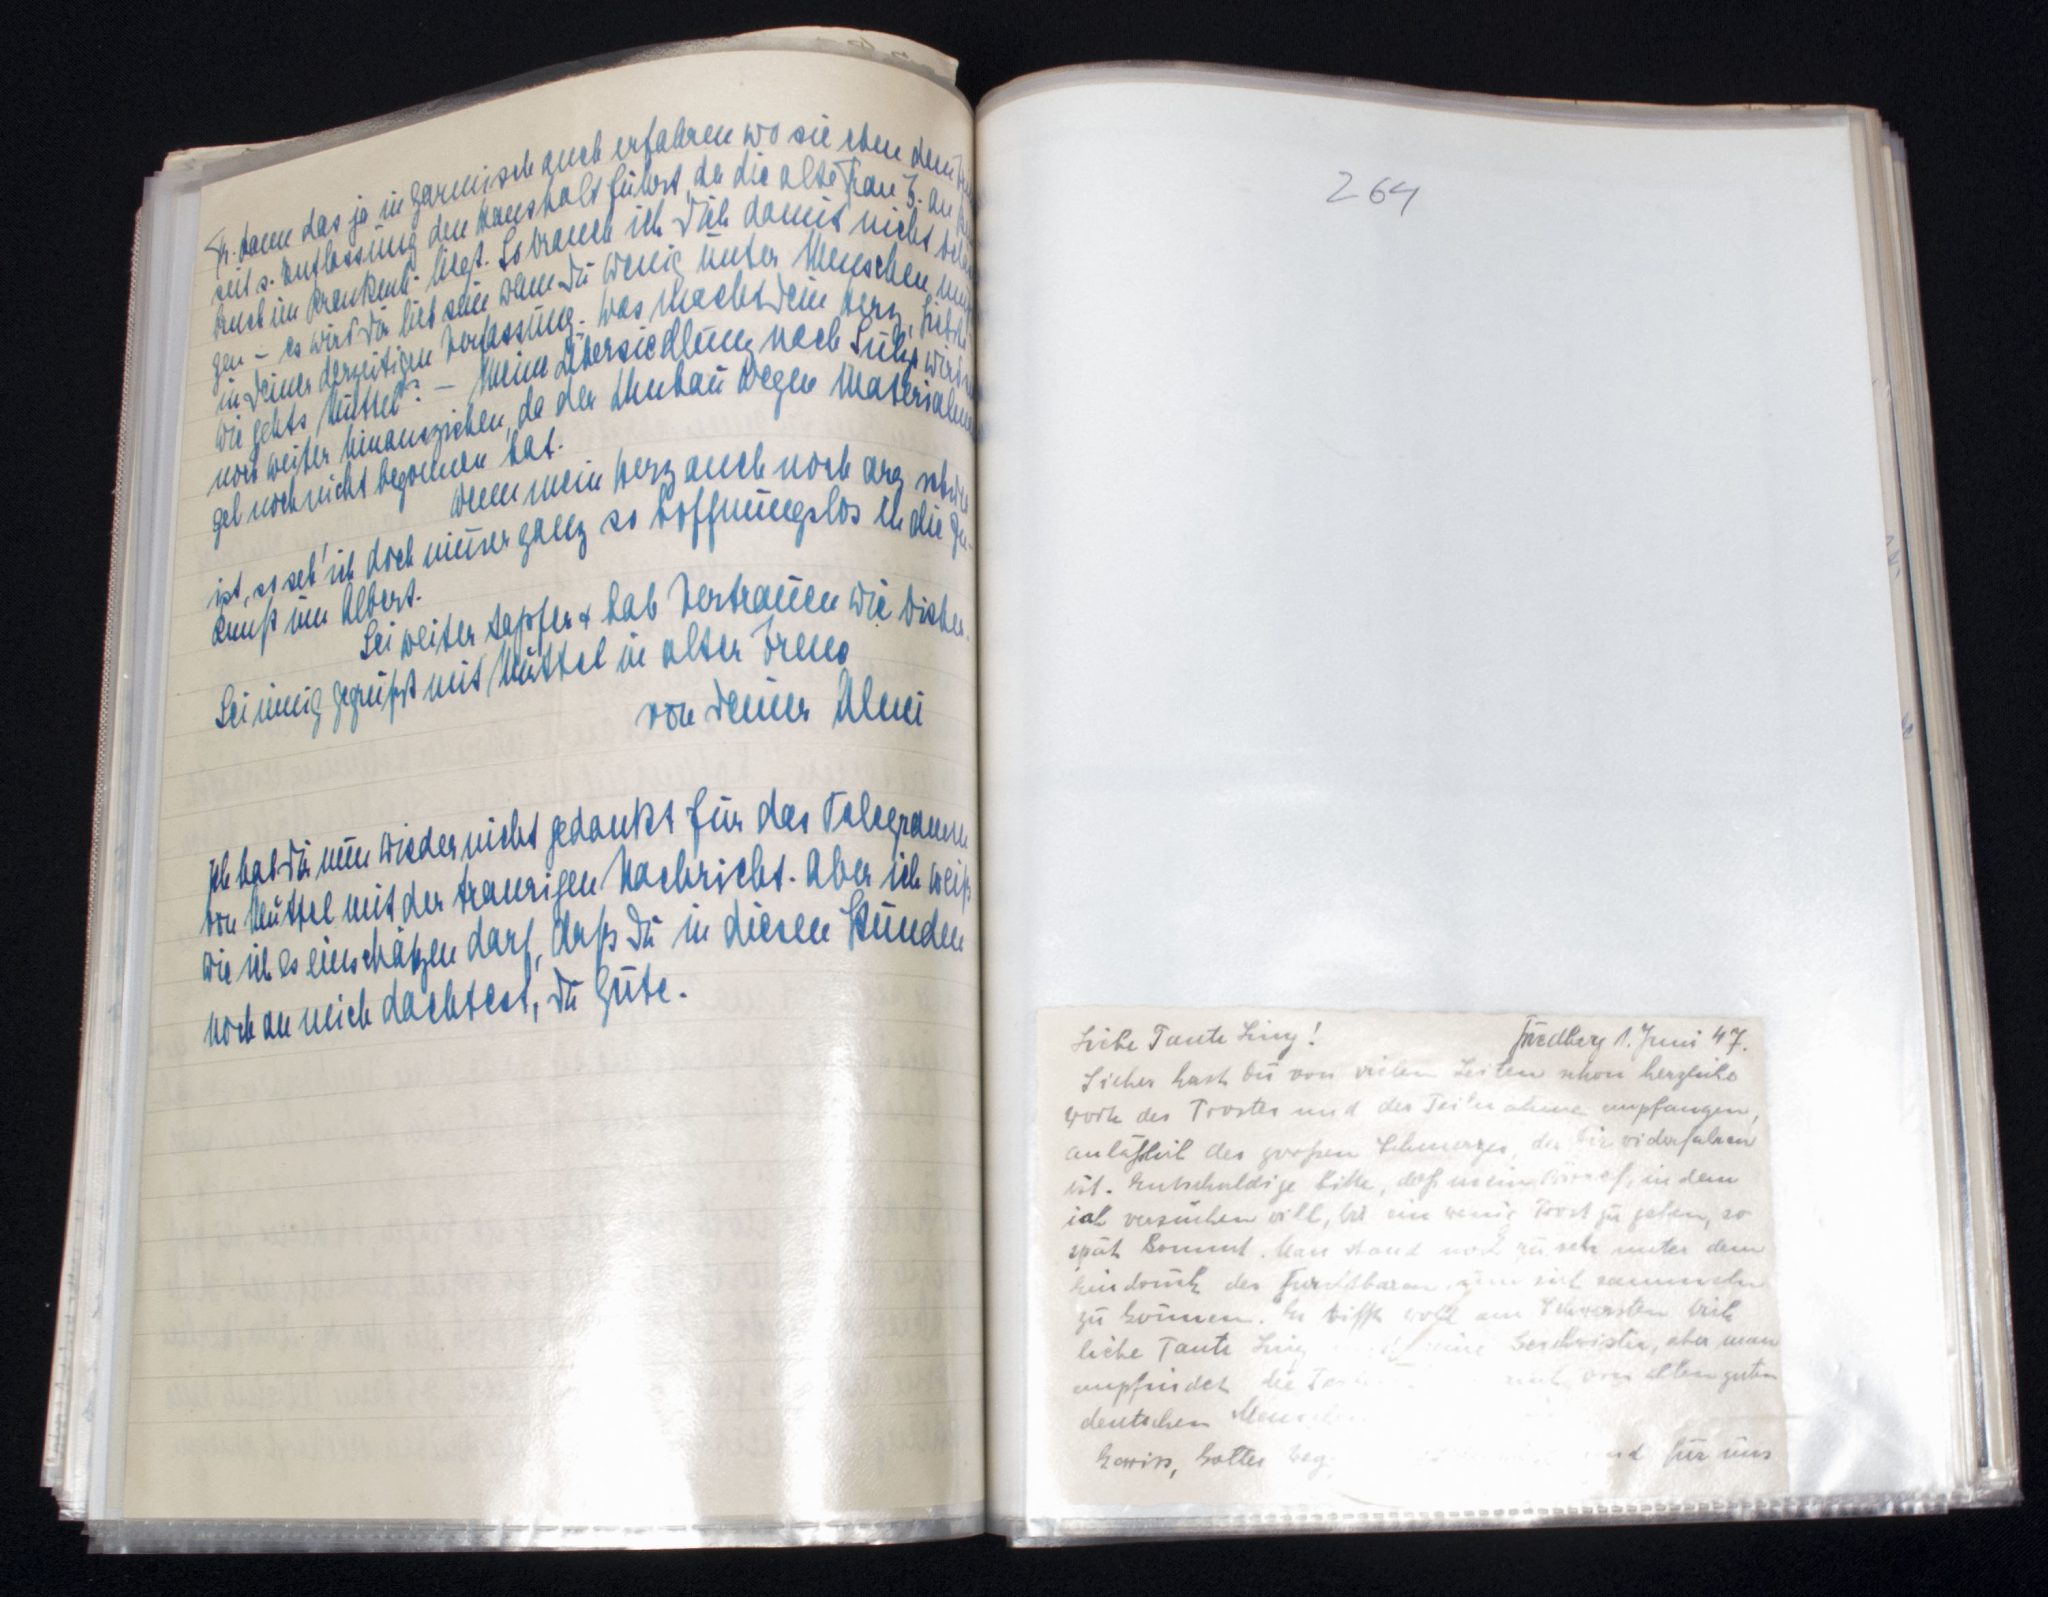 Fr. kann das ja in Garmisch auch erfahren wo sie eben dem
seit s. Entlassung den Haushalt führt, da die alte Frau Z. an
bruch im Krankenh. liegt. So brauch ich Dich damit nicht
gen – es wird Dir lieb sein wenn Du wenig unter Menschen
in Deiner derzeitigen Verfassung. Was macht Dein Herz, Liebste
wie gehts Muttel? – Meine Übersiedlung nach Sülze wird
noch weiter hinausziehen, da der Umbau wegen Materialman
gel noch nicht begonnen hat.
Wenn mein Herz auch noch arg schwer
ist, so seh' ich doch nimmer ganz so hoffnungslos in die Zu-
kunft um Albert.
Sei weiter tapfer & hab Vertrauen wie bisher.
Sei innig gegrüßt mit Muttel in alter Treue
von Deiner Almi
Ich hab Dir nun wieder nicht gedankt für das Telegramm
von Muttel mit der traurigen Nachricht. Aber ich weiß
wie ich es einschätzen darf, daß Du in diesen Stunden
noch an mich dachtest, Du Gute.
264
Liebe Tante Liny! Friedberg 1. Juni 47.
Sicher hast Du von vielen Seiten schon herzliche
Worte des Trostes und der Teilnahme empfangen,
anläßlich des großen Schmerzes, der Dir widerfahren
ist. Entschuldige bitte, daß mein Brief, in dem
ich versuchen will, Dir ein wenig Trost zu geben, so
spät kommt. Man stand noch zu sehr unter dem
Eindruck des Furchtbaren, um sich sammeln
zu können. Es trifft wohl am Schwersten Dich
liebe Tante Liny Geschwister, aber man
empfindet die von allen guten
deutschen
Gewiss, Gottes und für uns